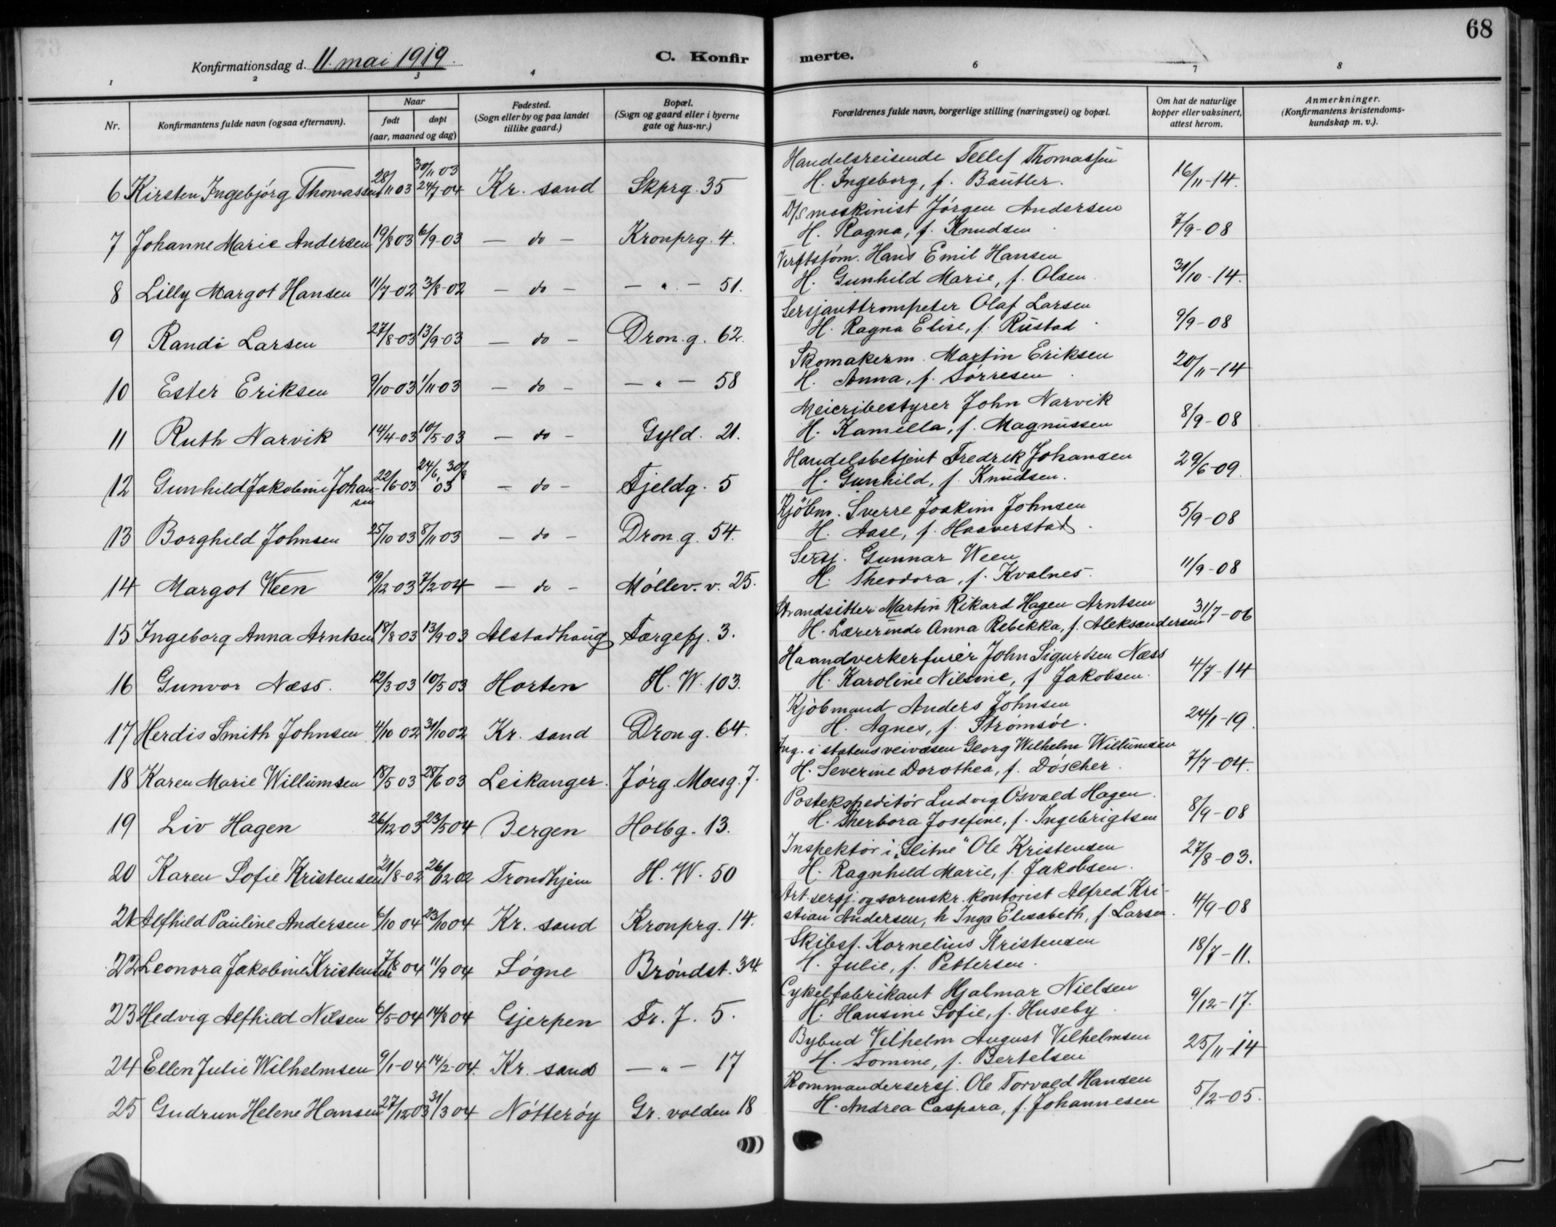 68
Konfirmationsdag d. 11. mai 1919.
C. Konfirmerte.
1 2 3 4 6 7 8
Nr.
Konfirmantens fulde navn (ogsaa efternavn).
Naar
født døpt
(aar, maaned og dag)
Fødested.
(Sogn eller by og paa landet
tillike gaard.)
Bopæl.
(Sogn og gaard eller i byerne
gate og hus-nr.)
Forældrenes fulde navn, borgerlige stilling (næringsvei) og bopæl.
Om hat de naturlige
kopper eller vaksinert,
attest herom.
Anmerkninger.
(Konfirmantens kristendoms-
kundskap m. v.).
6 Kirsten Ingebjørg Thomassen 28/11 03 30/11 03 24/7 04 Kr. sand Skprg. 35 Handelsreisende Tellef Thomassen
H. Ingeborg, f. Bäutler. 16/11-14.
7 Johanne Marie Andersen 19/8 03 6/9-03 - do - Kronprg. 4. D/S maskinist Jørgen Andersen
H. Ragna, f. Knudsen 7/9-08
8 Lilly Margot Hansen 11/7-02 3/8-02 - do - - " - 51. Verftsføm. Hans Emil Hansen
H. Gunhild Marie, f. Olsen 31/10-14.
9 Randi Larsen 27/8-03 13/9-03 - do - Dron.g. 62. Sersjanttrompeter Olaf Larsen
H. Ragna Elise, f. Rustad. 9/9-08
10 Ester Eriksen 9/10-03 1/11-03 - do - - " - 58 Skomakerm. Martin Eriksen
H. Anna, f. Sørresen 20/11-14
11 Ruth Narvik 14/4-03 10/5-03 - do - Gyld. 21. Meieribestyrer John Narvik
H. Kamella, f. Magnussen 8/9-08
12 Gunhild Jakobine Johansen 22/6-03 24/6, 30/8 03 - do - Fjeldg. 5 Handelsbetjent Fredrik Johansen
H. Gunhild, f. Knudsen. 29/6-09
13 Borghild Johnsen 25/10-03 8/11-03 - do - Dron.g. 54. Kjøbm. Sverre Joakim Johnsen
H. Aase, f. Haaverstad. 5/9-08
14 Margot Ween 19/12-03 7/2-04 - do - Møllev. v. 25. Sersj. Gunnar Ween
H. Theodora, f. Kvalnes. 11/9-08
15 Ingeborg Anna Arntsen 18/8-03 13/9-03 Alstadhaug Færgefj. 3. Strandsitter Martin Rikard Hagen Arntsen
H. Lærerinde Anna Rebekka, f. Aleksandersen 31/7-06
16 Gunvor Næss. 12/3-03 10/5 03 Horten H. W. 103. Haandverkerfurér John Sigurdsen Næss
H. Karoline Nilsine, f. Jakobsen. 4/7-14
17 Herdis Smith Johnsen 4/10 02 31/10 02 Kr. sand Dron g. 64. Kjøbmand Anders Johnsen
H. Agnes, f. Strømsøe. 24/1-19.
18 Karen Marie Willumsen 18/5 03 28/6 03 Leikanger. Jørg. Moesg. 7. Ing. i statens veivæsen Georg Wilhelm Willumsen
H. Severine Dorothea, f. Døscher. 7/7-04.
19 Liv Hagen 26/12 03 23/5 04 Bergen Holbg. 13. Postekspeditør Ludvig Osvald Hagen.
H. Therbora Josefine, f. Ingebrigtsen 8/9-08
20 Karen Sofie Kristensen 21/8-02 26/12 02 Trondhjem H. W. 50 Inspektør i "Glitne" Ole Kristensen
H. Ragnhild Marie, f. Jakobsen. 27/8-03.
21 Alfhild Pauline Andersen 6/10 04 23/10 04 Kr. sand Kronprg. 14. Art. sersj. og sorenskr. kontorist Alfred Kri-
stian Andersen, h Inga Elisabeth, f Larsen. 4/9-08
22 Leonora Jakobine Kristensen 7/8 04 11/9 04 Søgne Brøndst. 34. Skibsf. Kornelius Kristensen
H. Julie, f. Pettersen. 18/7-11.
23 Hedvig Alfhild Nilsen 6/5-04 14/8 04 Gjerpen Fr. J. 5. Cykelfabrikant Hjalmar Nielsen
H. Hansine Sofie, f. Huseby. 9/12-17.
24 Ellen Julie Wilhelmsen 9/1-04 14/2-04. Kr. sand - " - 17 Bybud Vilhelm August Vilhelmsen
H. Tomine, f. Bertelsen 25/11-14
25 Gudrun Helene Hansen 27/12 03 31/3 04 Nøtterøy Gr. volden 18 Kommandersersj. Ole Torvald Hansen
H. Andrea Caspara, f. Johannesen 5/2-05.